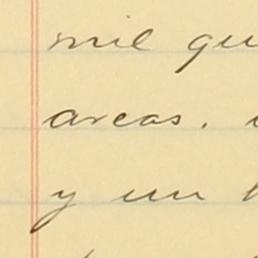 mil
areas.
y un